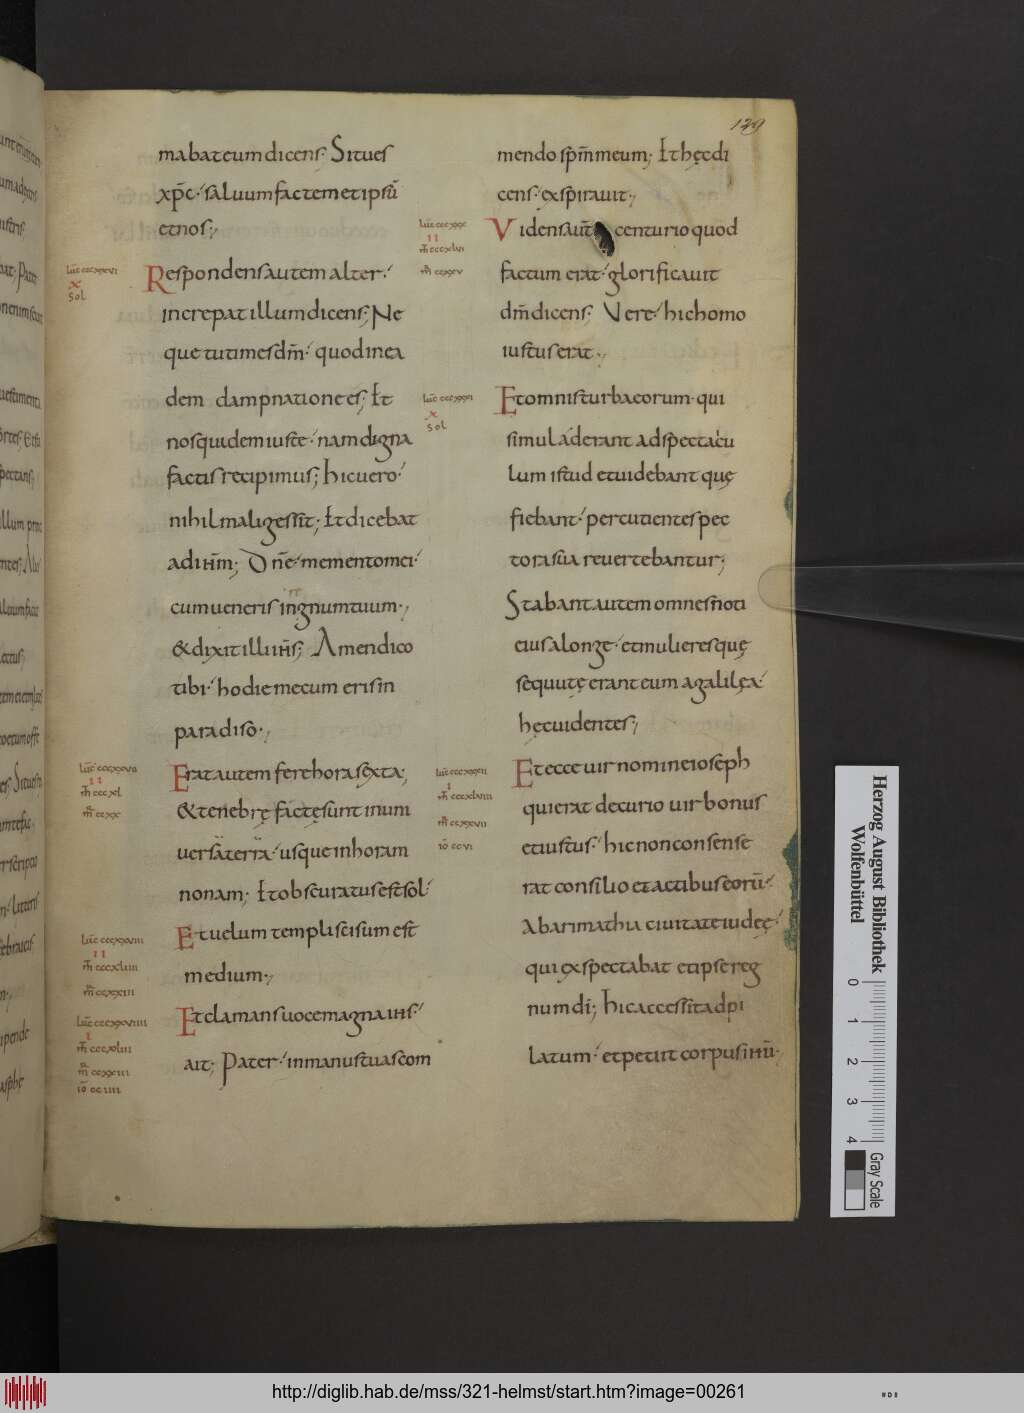 129
mabateumdicens; Situes
xp̄c· saluumfactemetipsū
etnos;
Respondensautem alter·
increpatillumdicens; Ne
que tutimesdm̄· quodinea
dem dampnationees; Et
nosquidemiuste· namdigna
factisrecipimus; hicuero·
nihilmaligessit; Etdicebat
adihm̄; Dn̄e· mementomei·
cumueneris inregnumtuum·,
&dixitilliih̄s; Amendico
tibi· hodiemecum erisin
paradiso·,
Eratautem ferehorasexta;
&tenebrę factęsuntinum
uersaterra· usqueinhoram
nonam; Etobscuratusestsol·
Etuelum templiscisum est
medium·,
Etclamansuocemagnaihs·
ait; Pater· inmanustuascom
mendo spm̄meum; Ethęcdi
cens· exspirauit·,
Vidensaut̄ centurioquod
factum erat· glorificauit
dm̄dicens; Vere· hichomo
iustuserat·,
Etomnisturbaeorum· qui
simuladerant adspectacu
lum istud etuidebant quę
fiebant· percutientespec
torasua reuertebantur;
Stabantautem omnesnoti
eiusalonge· etmulieresquę
sequutęeranteum agalilęa·
hęcuidentes;
Etecceuirnomineioseph
quierat decurio uirbonus
etiustus· hicnonconsense
rat consilio etactibuseorū·
Abarimathia ciuitateiudeę·
quiexspectabat etipsereg
numdī; hicaccessitadpi
latum· etpetiit corpusihū·
Sol
Sol
Herzog August Bibliothek
Wolfenbüttel
0 1 2 3 4
Gray Scale
http://diglib.hab.de/mss/321-helmst/start.htm?image=00261